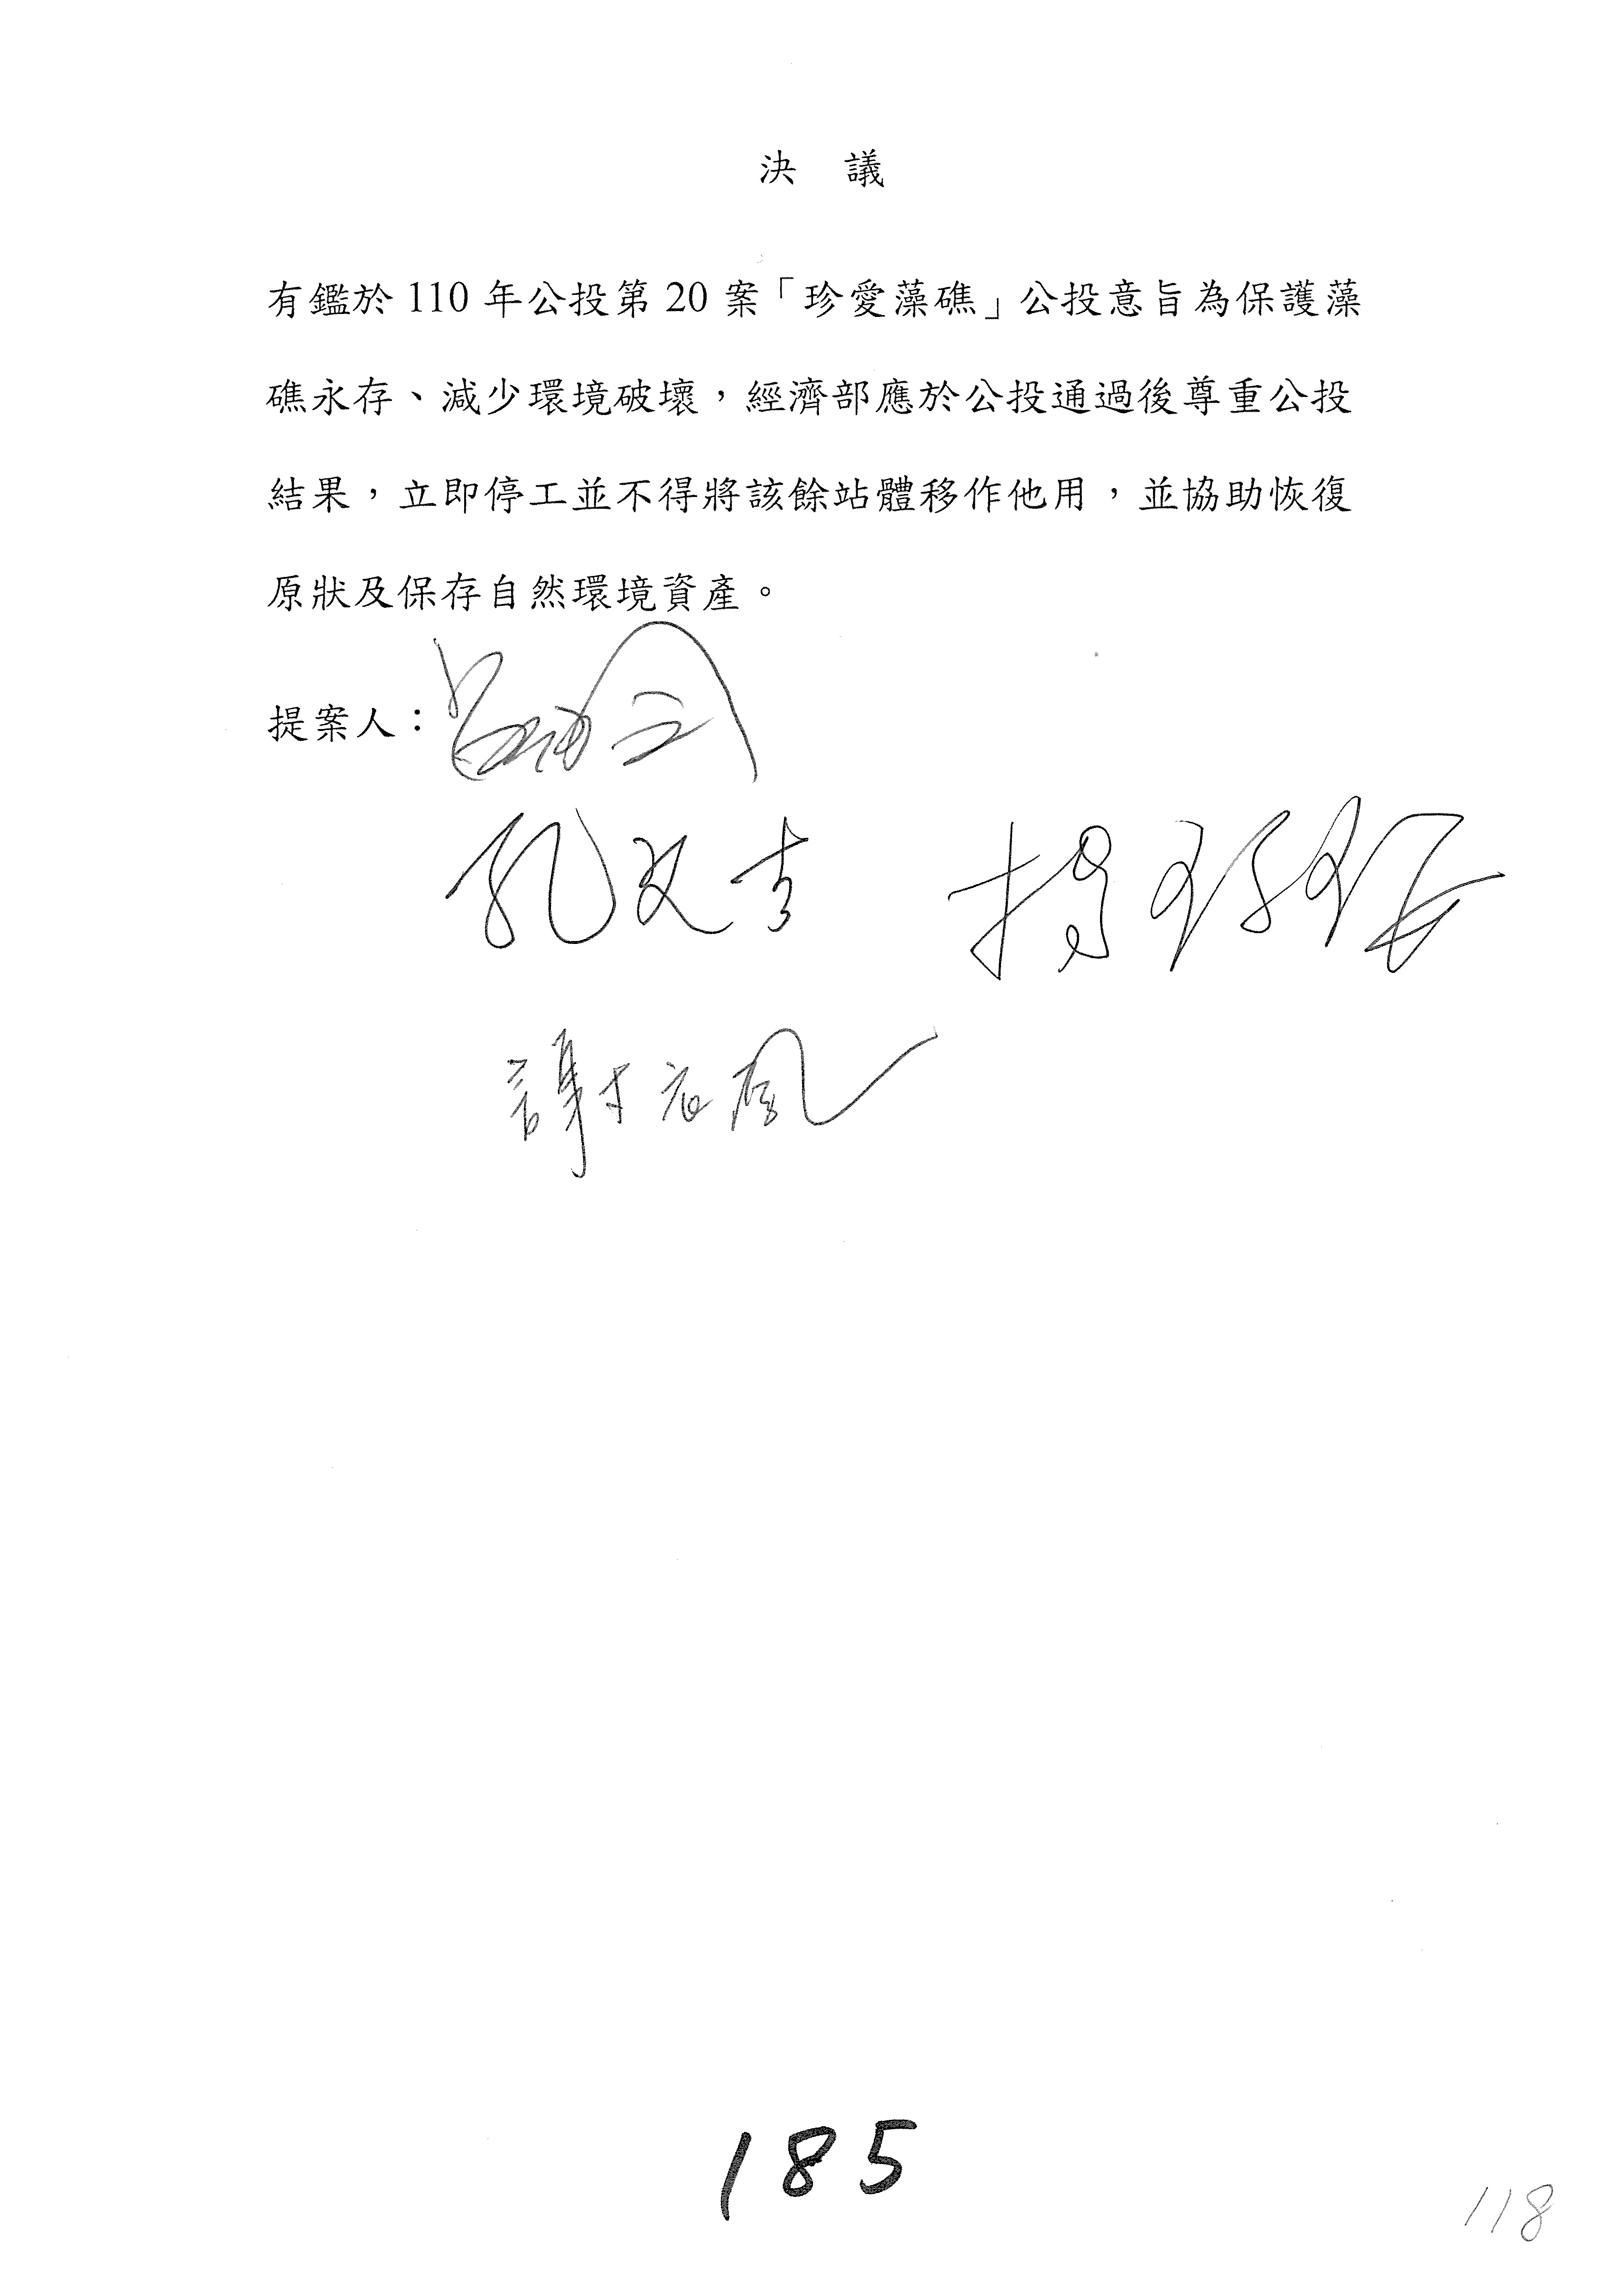 決 議
有鑑於 110 年公投第 20 案「珍愛藻礁」公投意旨為保護藻
礁永存、減少環境破壞，經濟部應於公投通過後尊重公投
結果，立即停工並不得將該餘站體移作他用，並協助恢復
原狀及保存自然環境資產。
提案人：
孔文吉 楊瓊瓔
謝衣鳳
185
118